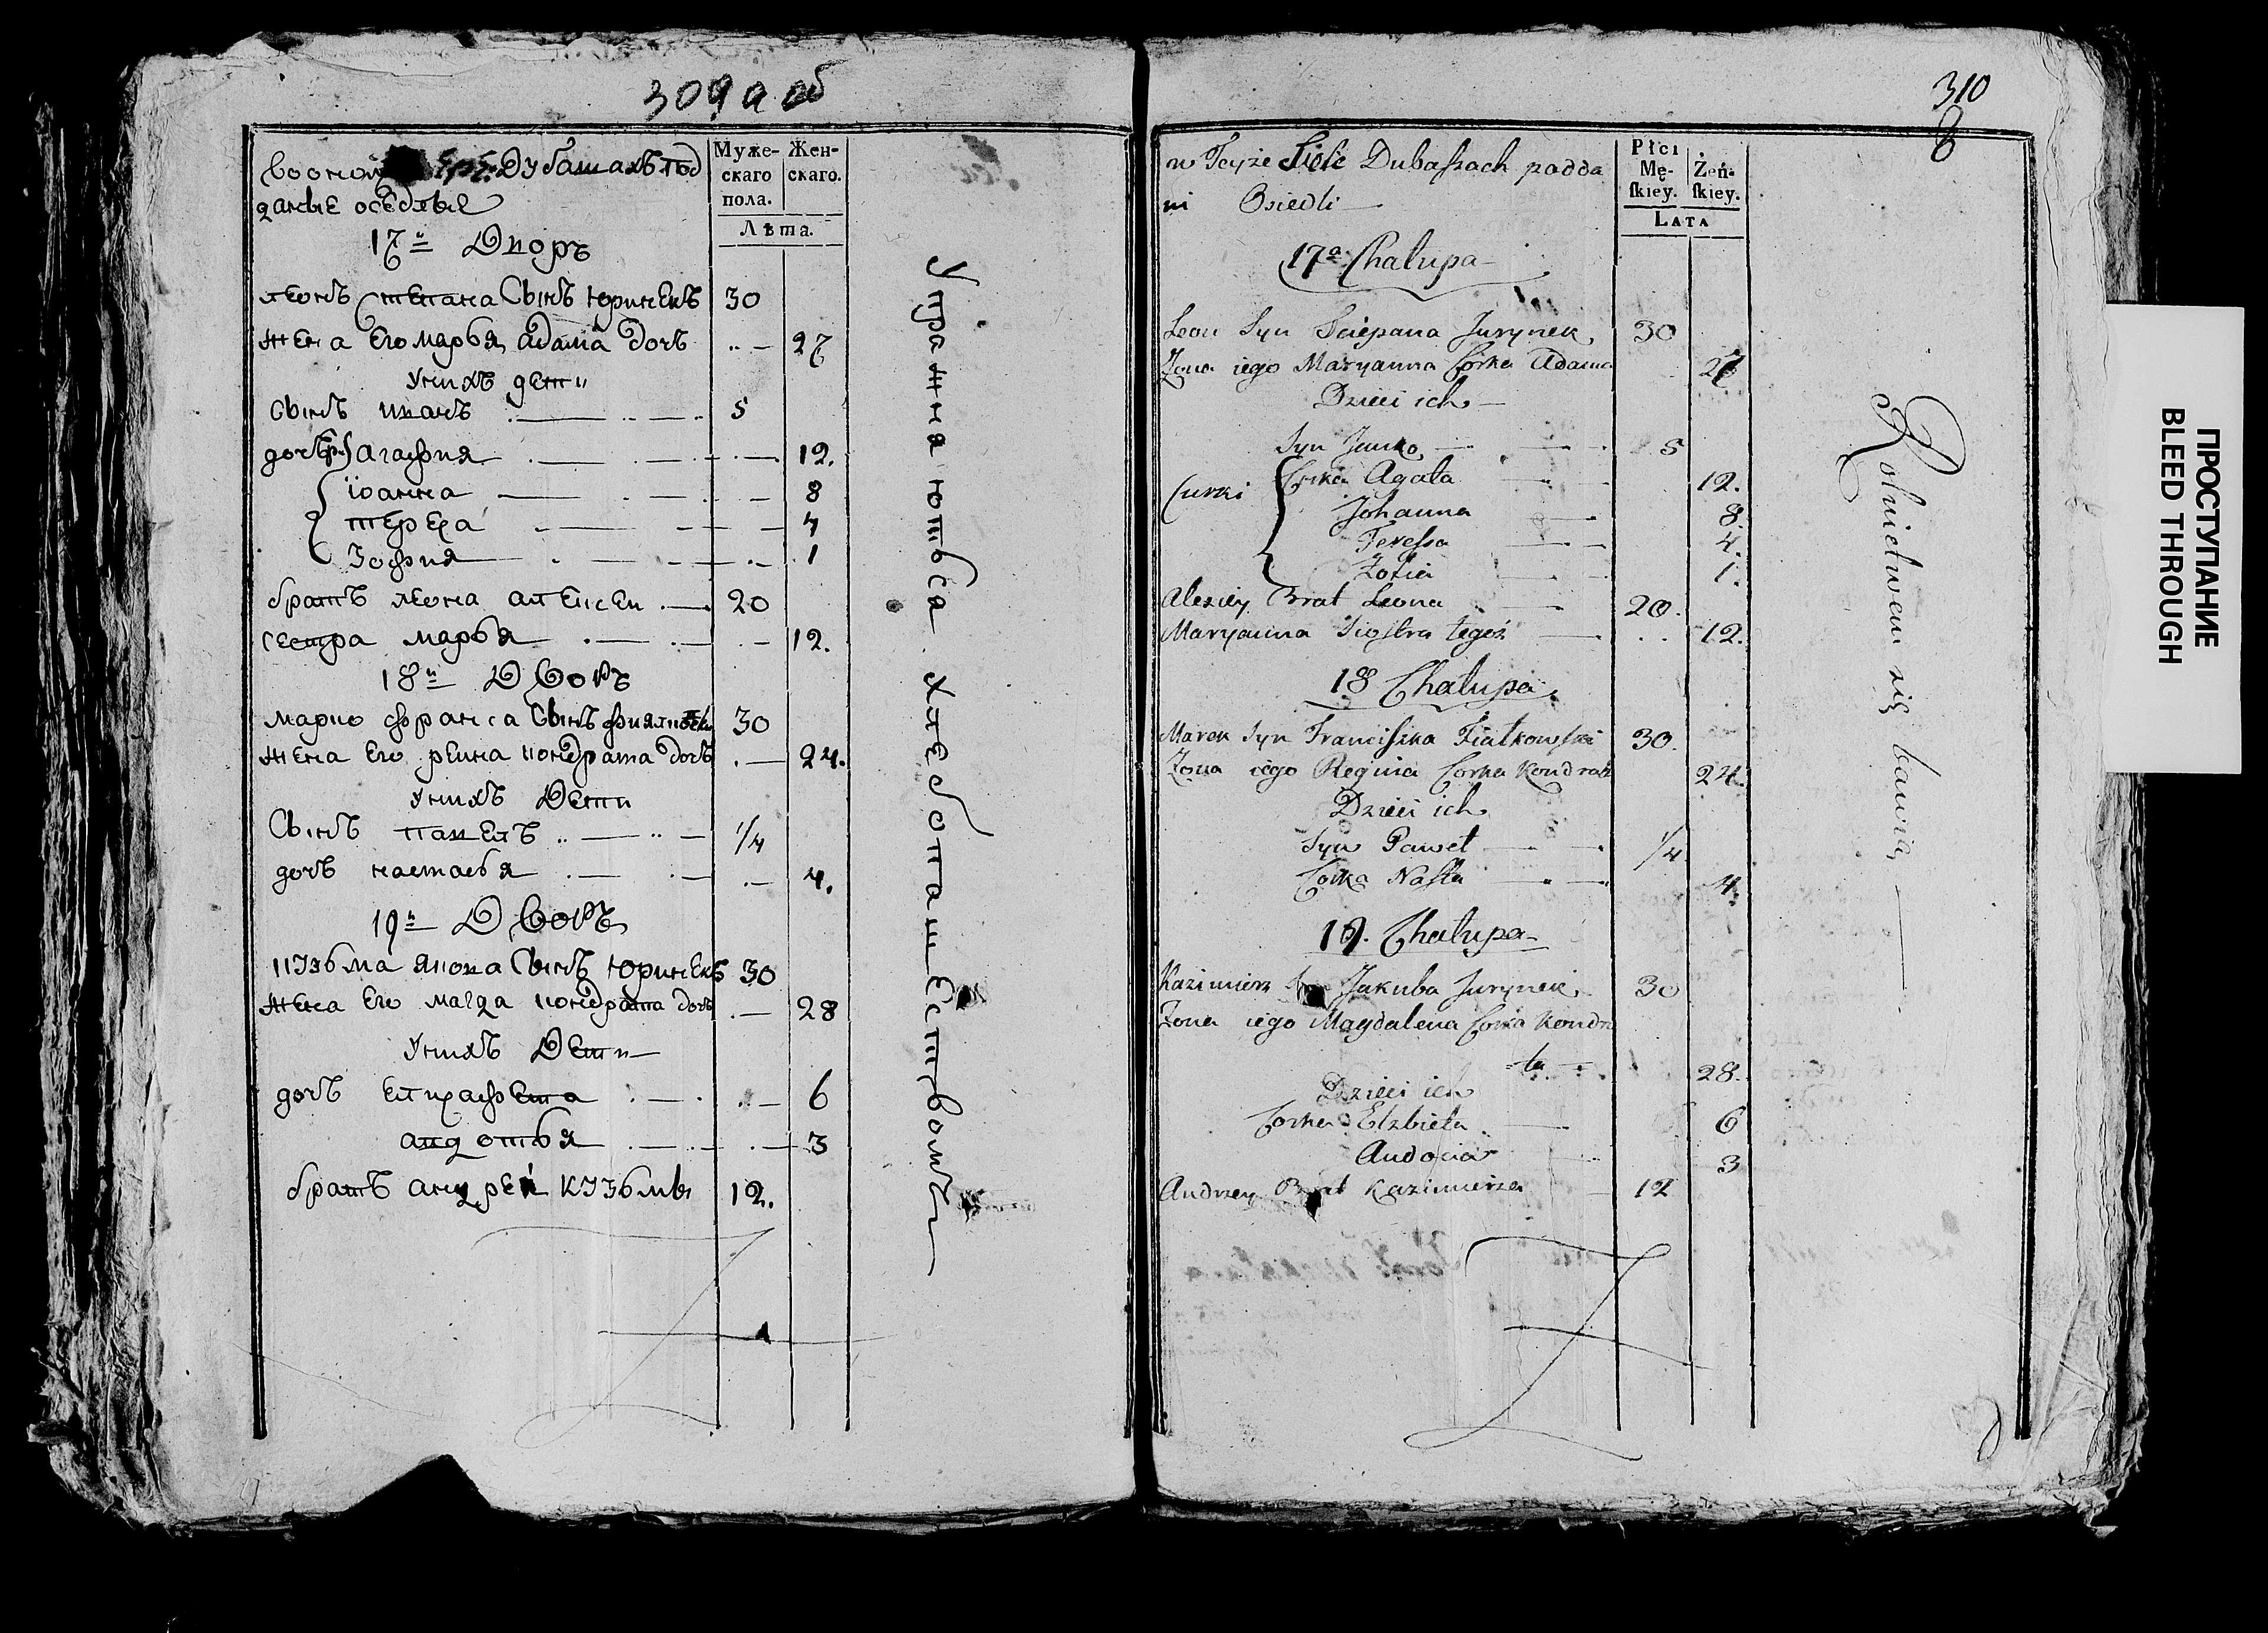 309 а об
Муже-
скаго
пола.
Жен-
скаго.
Лѣта.
воонои Дубашахъ под
даные оседлые
17й Дворъ
леонъ степана Сынъ юринекъ 30
жена Его марья адама дочь 27
Унихъ дети
Сынъ иванъ 5
дочь агафия 12.
иоанна 8
тереза 4
Зофия 1
братъ леона алексеи 20
сестра марья 12.
18й Дворъ
марко франса Сынъ 30
жена Его реина кондрата дочь 24.
Унихъ Дети
Сынъ павелъ 1/4
дочь настасья 4.
19й Дворъ
кузьма якова Сынъ юринекъ 30
жена Его магда кондрата дочь 28
Унихъ Дети
дочь елизафета 6
авдотья 3
братъ андреи кузьмы 12.
Упражняютьса хлебопашествомъ
310
8
Płci
Mę-
ſkiey.
Żeń-
ſkiey.
LATA
w Teyże Siele Dubaſzach podda
ni Osiedli
17a Chałupa
Leon Syn Sciepana Jurynek 30
Zona iego Maryanna Corka Adama 27
Dzieci ich
Syn Janko 5
Curki Corka Agata 12.
Johanna 8.
Tereſsa 4.
Zofia 1.
Alexiey Brat Leona 20.
Maryanna Siostra tegoż 12.
18 Chałupa
Marek Syn Franciſzka Fiałkowſki 30.
Zona iego Regina Corka Kondrata 24.
Dzieci ich
Syn Paweł 1/4
Corka Naſta 4.
19. Chałupa
Kazimierz Syn Jakuba Jurynek 30
Zona iego Magdalena Corka Kondra
ta 28.
Dzieci ich
Corka Elzbieta 6
Audocia 3
Andrzey Brat Kazimierza 12
Rolnictwem się bawią
ПРОСТУПАНИЕ
BLEED THROUGH